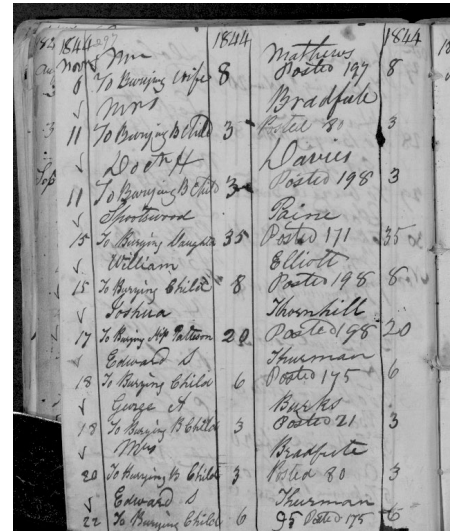 1844 1844 1844
Novr Mr Mathews
8 To Burying Wife 8 Posted 197 8
Mrs Bradfute
11 To Burying B Child 3 Posted 80 3
Doct H Davies
11 To Burying B Child 3 Posted 198 3
Spottswood Paine
15 To Burying Daughter 35 Posted 171 35
William Elliott
15 To Burying Child 8 Posted 198 8
Joshua Thornhill
17 To Burying Patteson 20 Posted 198 20
Edward S Thurman
18 To Burying Child 6 Posted 175 6
George A Burks
18 To Burying B Child 3 Posted 21 3
Mrs Bradfute
20 To Burying B Child 3 Posted 80 3
Edward S Thurman
22 To Burying Child 6 Posted 175 6